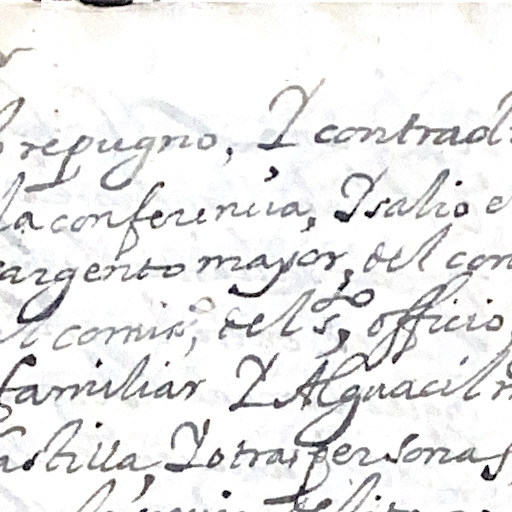 repugno, Y contrad
la conferencia, Y salio e
argento mayor, del con
el comis.º, del s.to officio,
familiar Y Alguacil m
astilla, Y otras personas